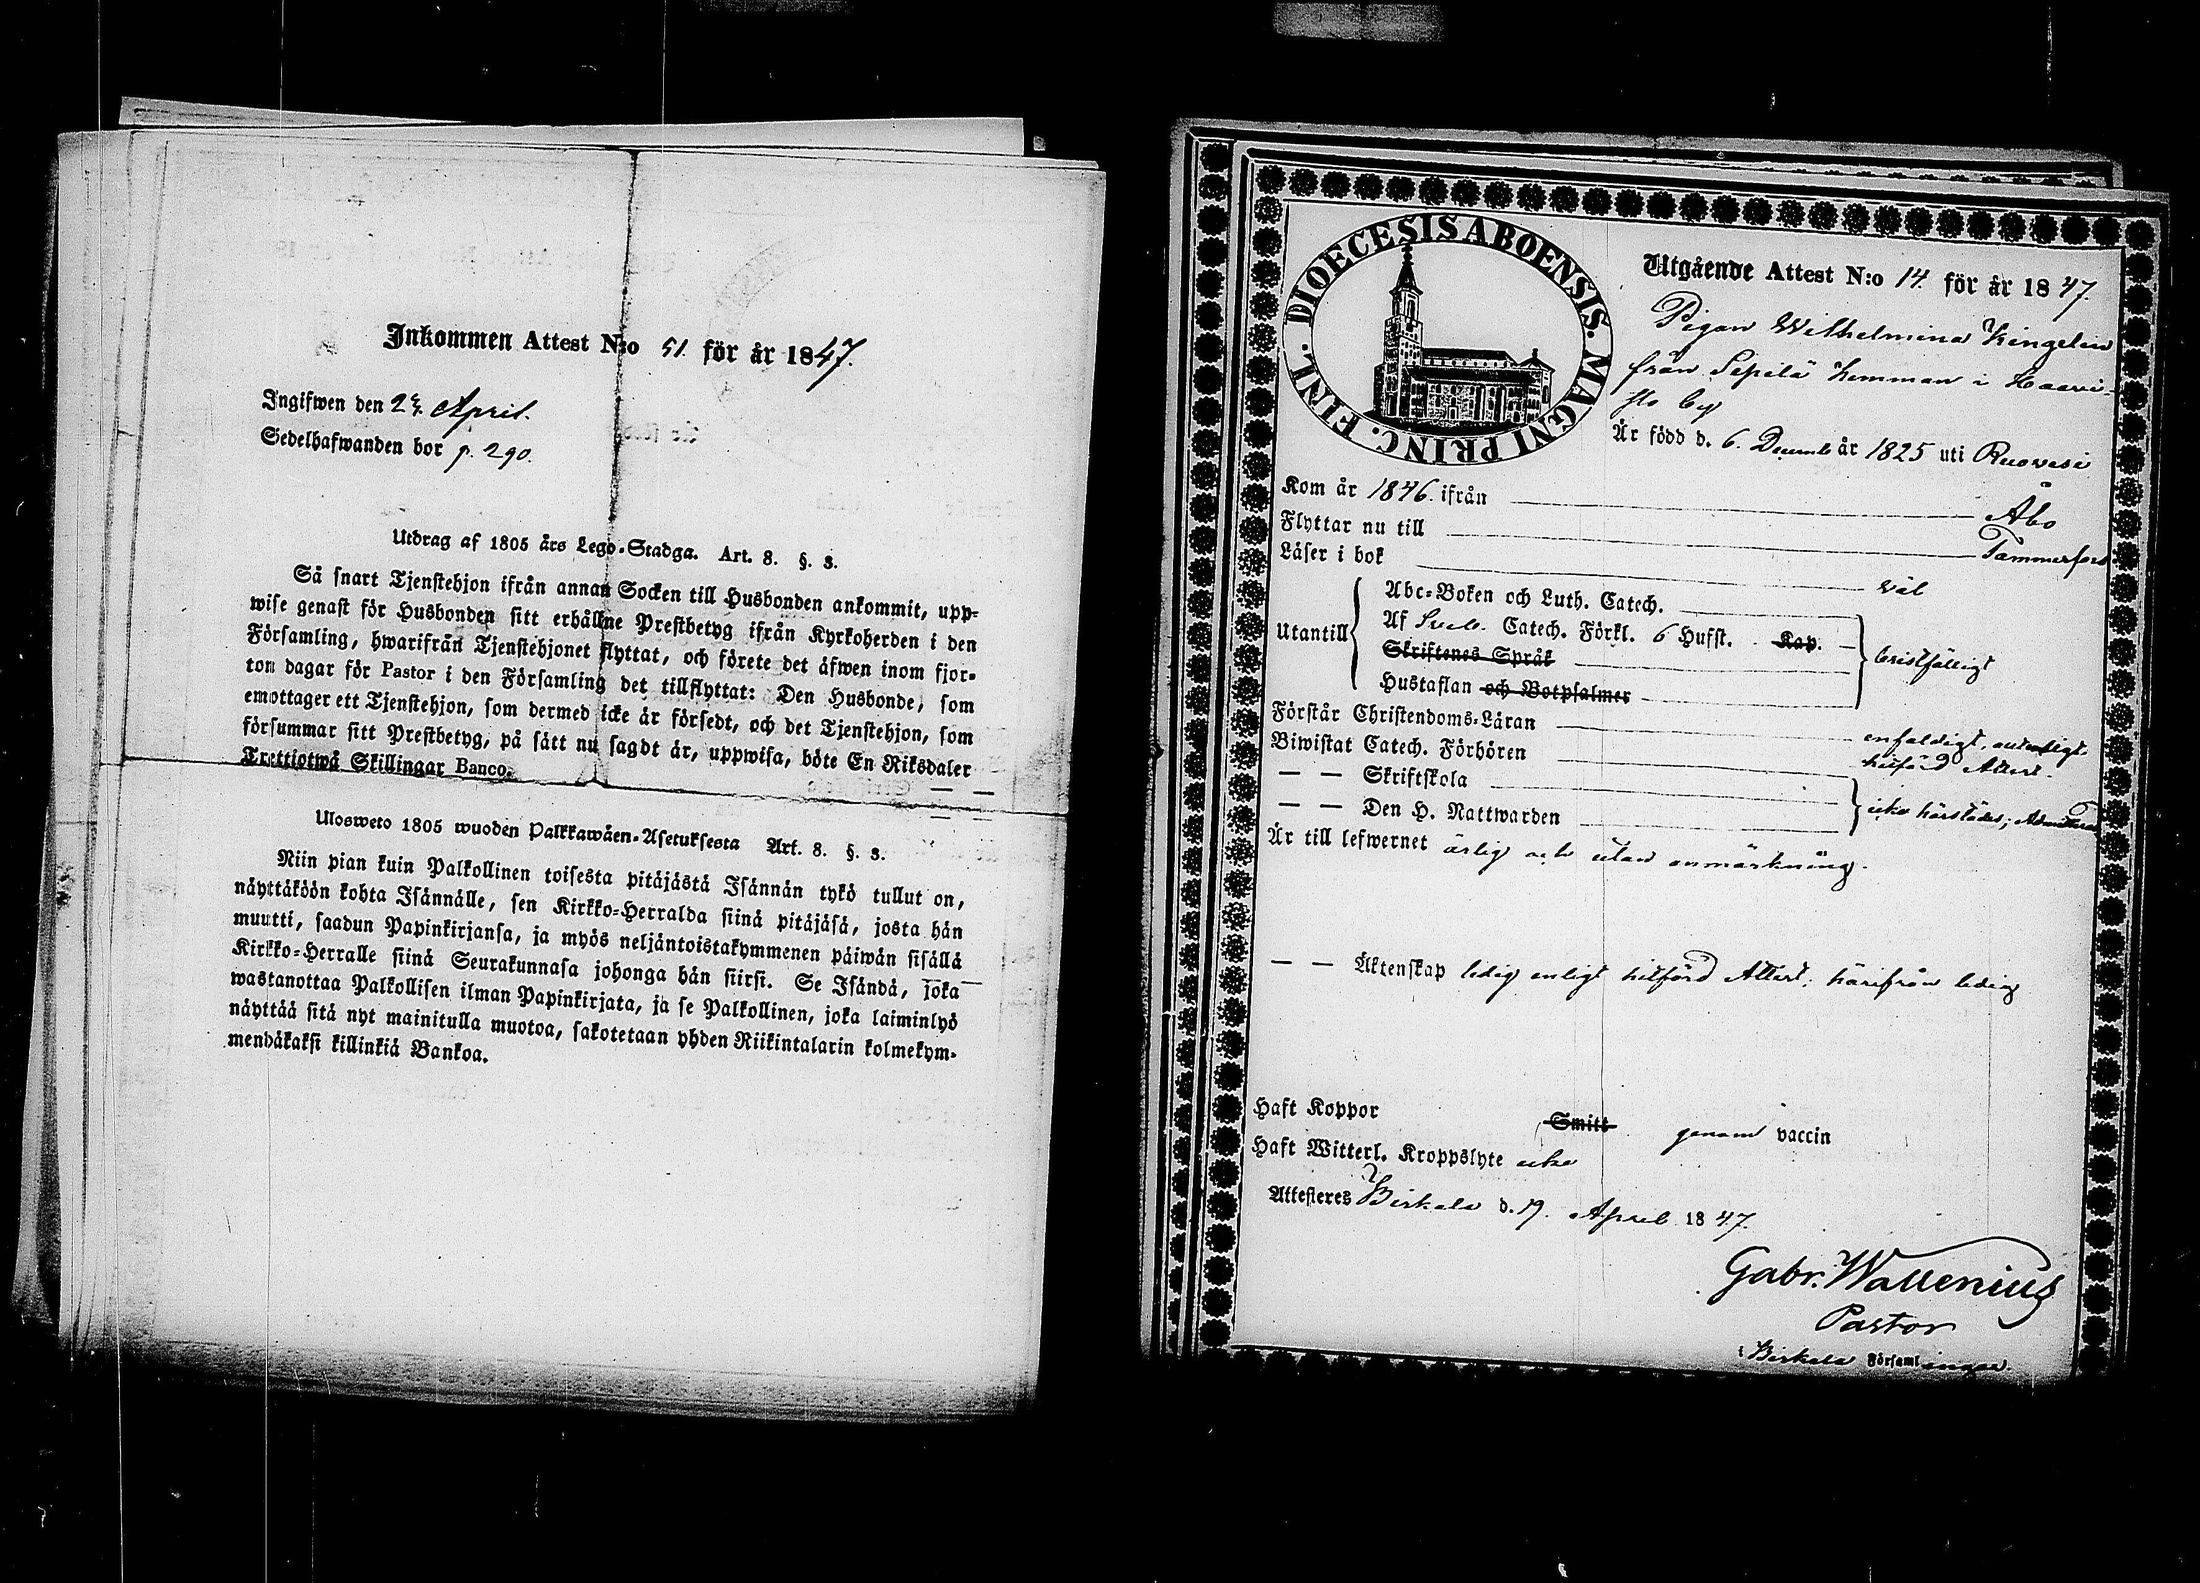 Inkommen Attest N:o 51. för år 1847.
Ingifwen den April.
Sedelhafwanden bor p. 290.
Utdrag af 1805 års Lego-Stadga. Art. 8. §. 3.
Så snart Tjenstehjon ifrån annan Socken till Husbonden ankommit, upp-
wise genast för Husbonden sitt erhållne Prestbetyg ifrån Kyrkoherden i den
Församling, hwarifrån Tjenstehjonet flyttat, och förete det äfwen inom fjor-
ton dagar för Pastor i den Församling det tillflyttat: Den Husbonde, som
emottager ett Tjenstehjon, som dermed icke är försedt, och det Tjenstehjon, som
försummar sitt Prestbetyg, på sätt nu sagdt är, uppwisa, böte En Riksdaler
Trettiotwå Skillingar Banco.
Ulosweto 1805 wuoden Palkkawäen-Asetuksesta Art. 8. §. 3.
Niin pian kuin Palkollinen toisesta pitäjästä Isännän tykö tullut on,
näyttäköön kohta Isännälle, sen Kirkko-Herralda siinä pitäjäsä, josta hän
muutti, saadun Papinkirjansa, ja myös neljäntoistakymmenen päiwän sisällä
Kirkko-Herralle siinä Seurakunnasa johonga hän siirsi. Se Isändä, joka
wastanottaa Palkollisen ilman Papinkirjata, ja se Palkollinen, joka laiminlyö
näyttää sitä nyt mainitulla muotoa, sakotetaan yhden Riikintalarin kolmekym-
mendäkaksi killinkiä Bankoa.
DIOECESIS ABOENSIS. MAGNI PRINC. FINL.
Utgående Attest N:o 14. för år 1847.
Pigan Wilhelmina Kingelin
från Sepilä hemman i Haavi-
sto by
Är född d. 6. Decemb år 1825 uti Ruovesi
Kom år 1846. ifrån Åbo
Flyttar nu till Tammerfors
Läser i bok väl
Utantill
Abc-Boken och Luth. Catech.
Af Sveb. Catech. Förkl. 6 Hufst. Kap.
Skriftenes Språk
Hustaflan och Botpsalmer
bristfälligt
Förstår Christendoms-Läran enfaldigt, enligt
Biwistat Catech. Förhören hitförd Attest.
— — Skriftskola
— — Den H. Nattwarden
icke härstädes;
Är till lefwernet ärlig och utan anmärkning.
— — Äktenskap ledig enligt hitförd Attest, härifrån ledig
Haft Koppor Smitt genom vaccin
Haft Witterl. Kroppslyte icke
Attesteres Birkala d. 19. April 1847.
Gabr. Wallenius
Pastor
i Birkala Församlingar.